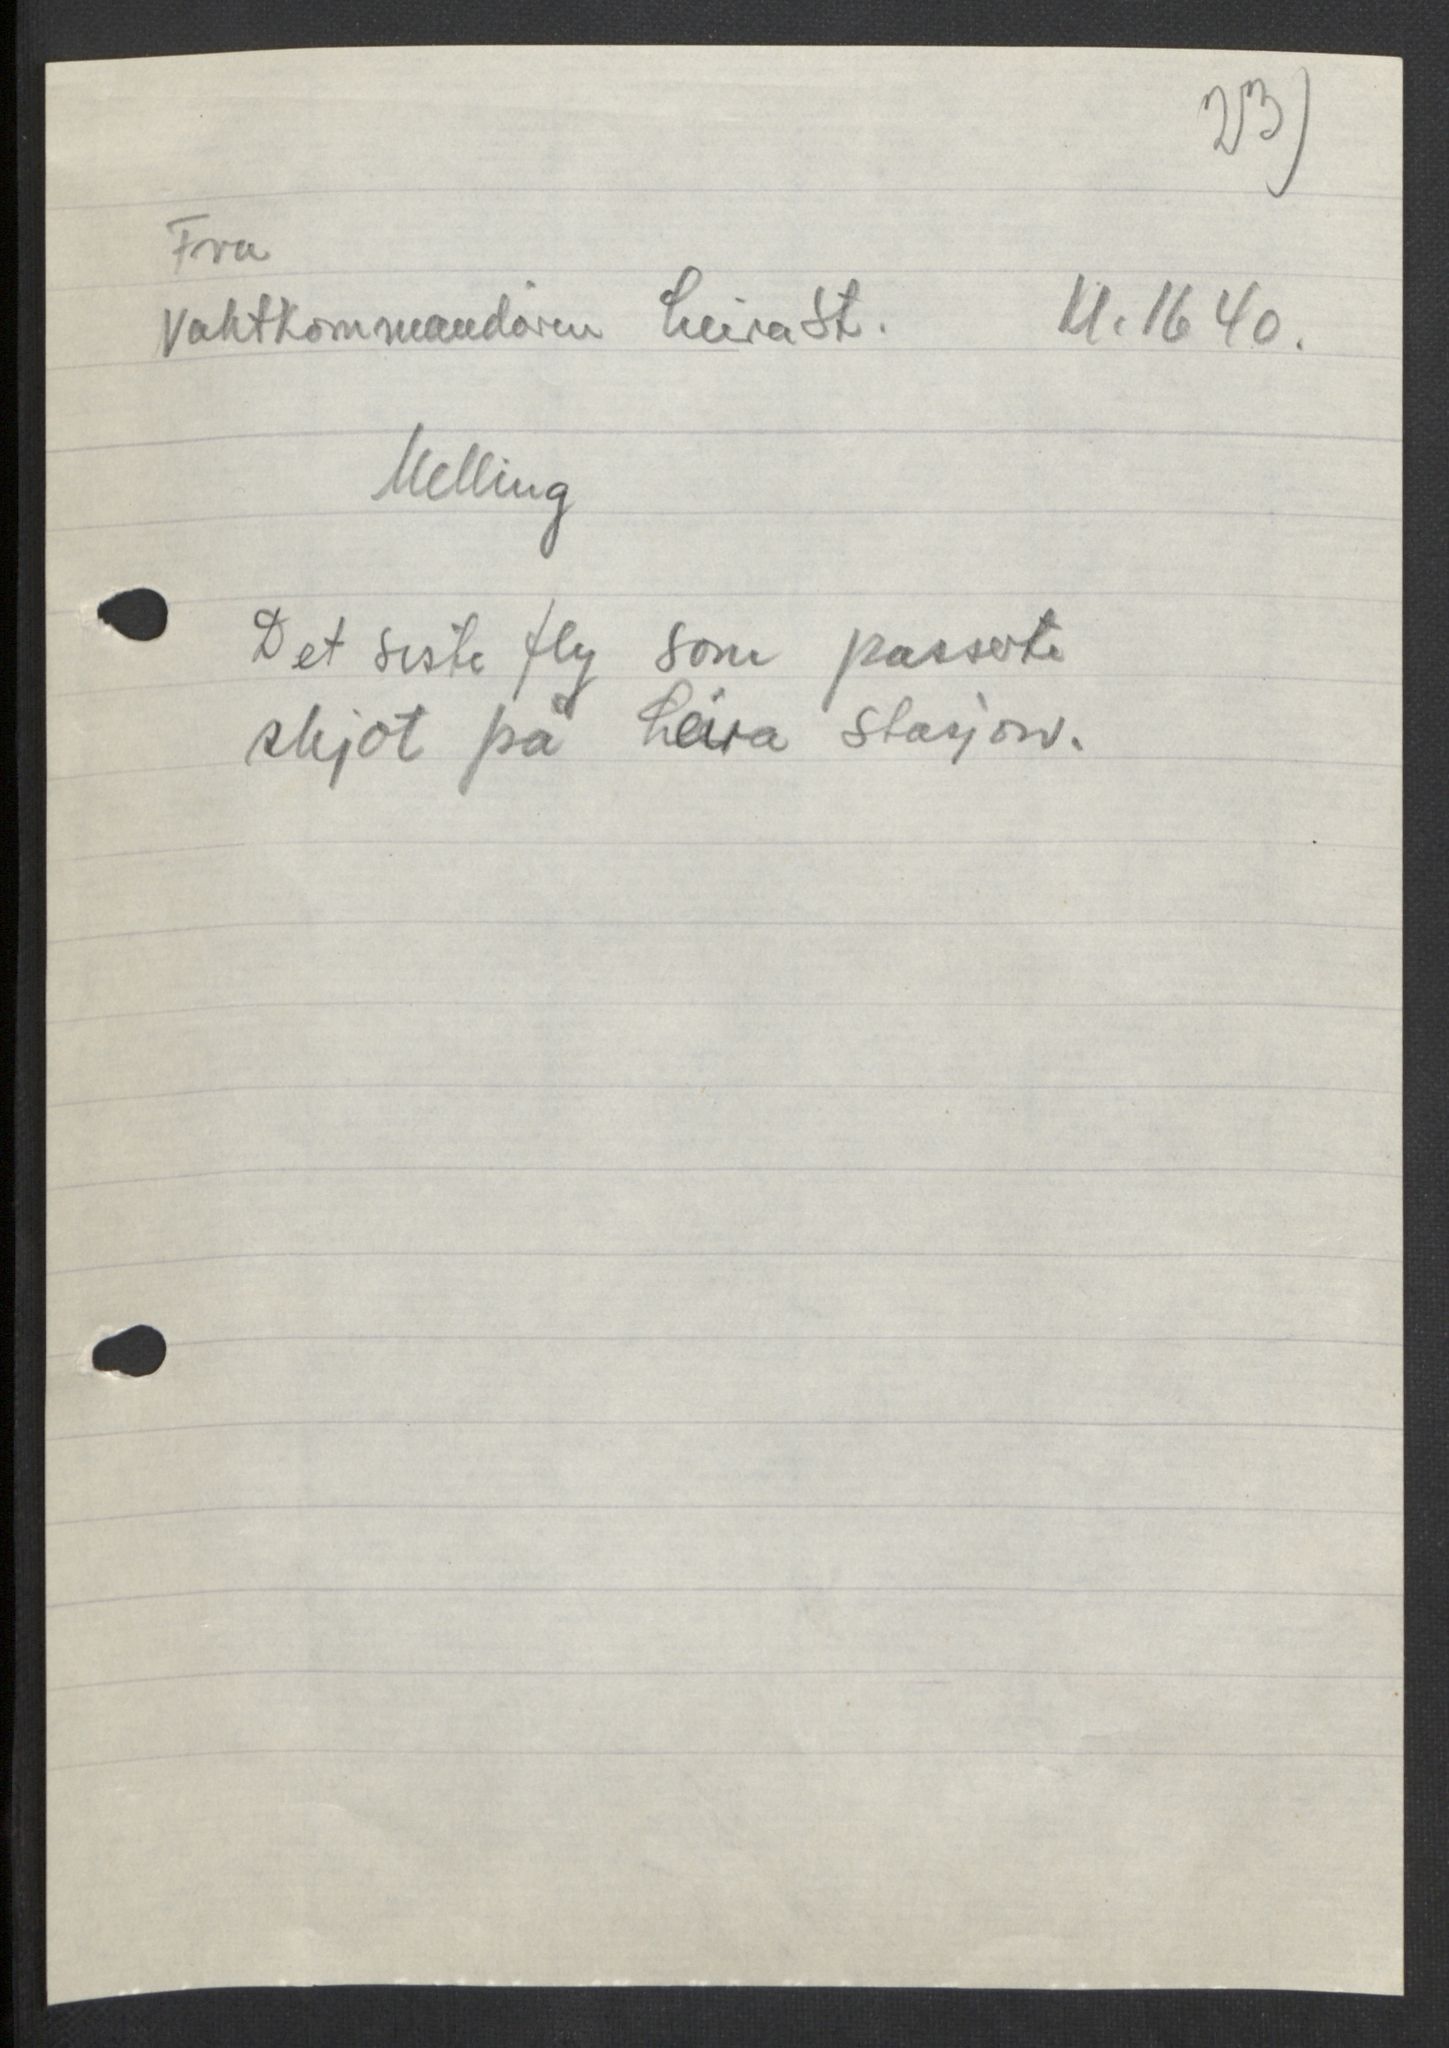 23)
Fra
Vahtkommandören Leira St. Kl. 16 40.
Melling
Det siste fly som passerte
skjöt på Leira stasjon.